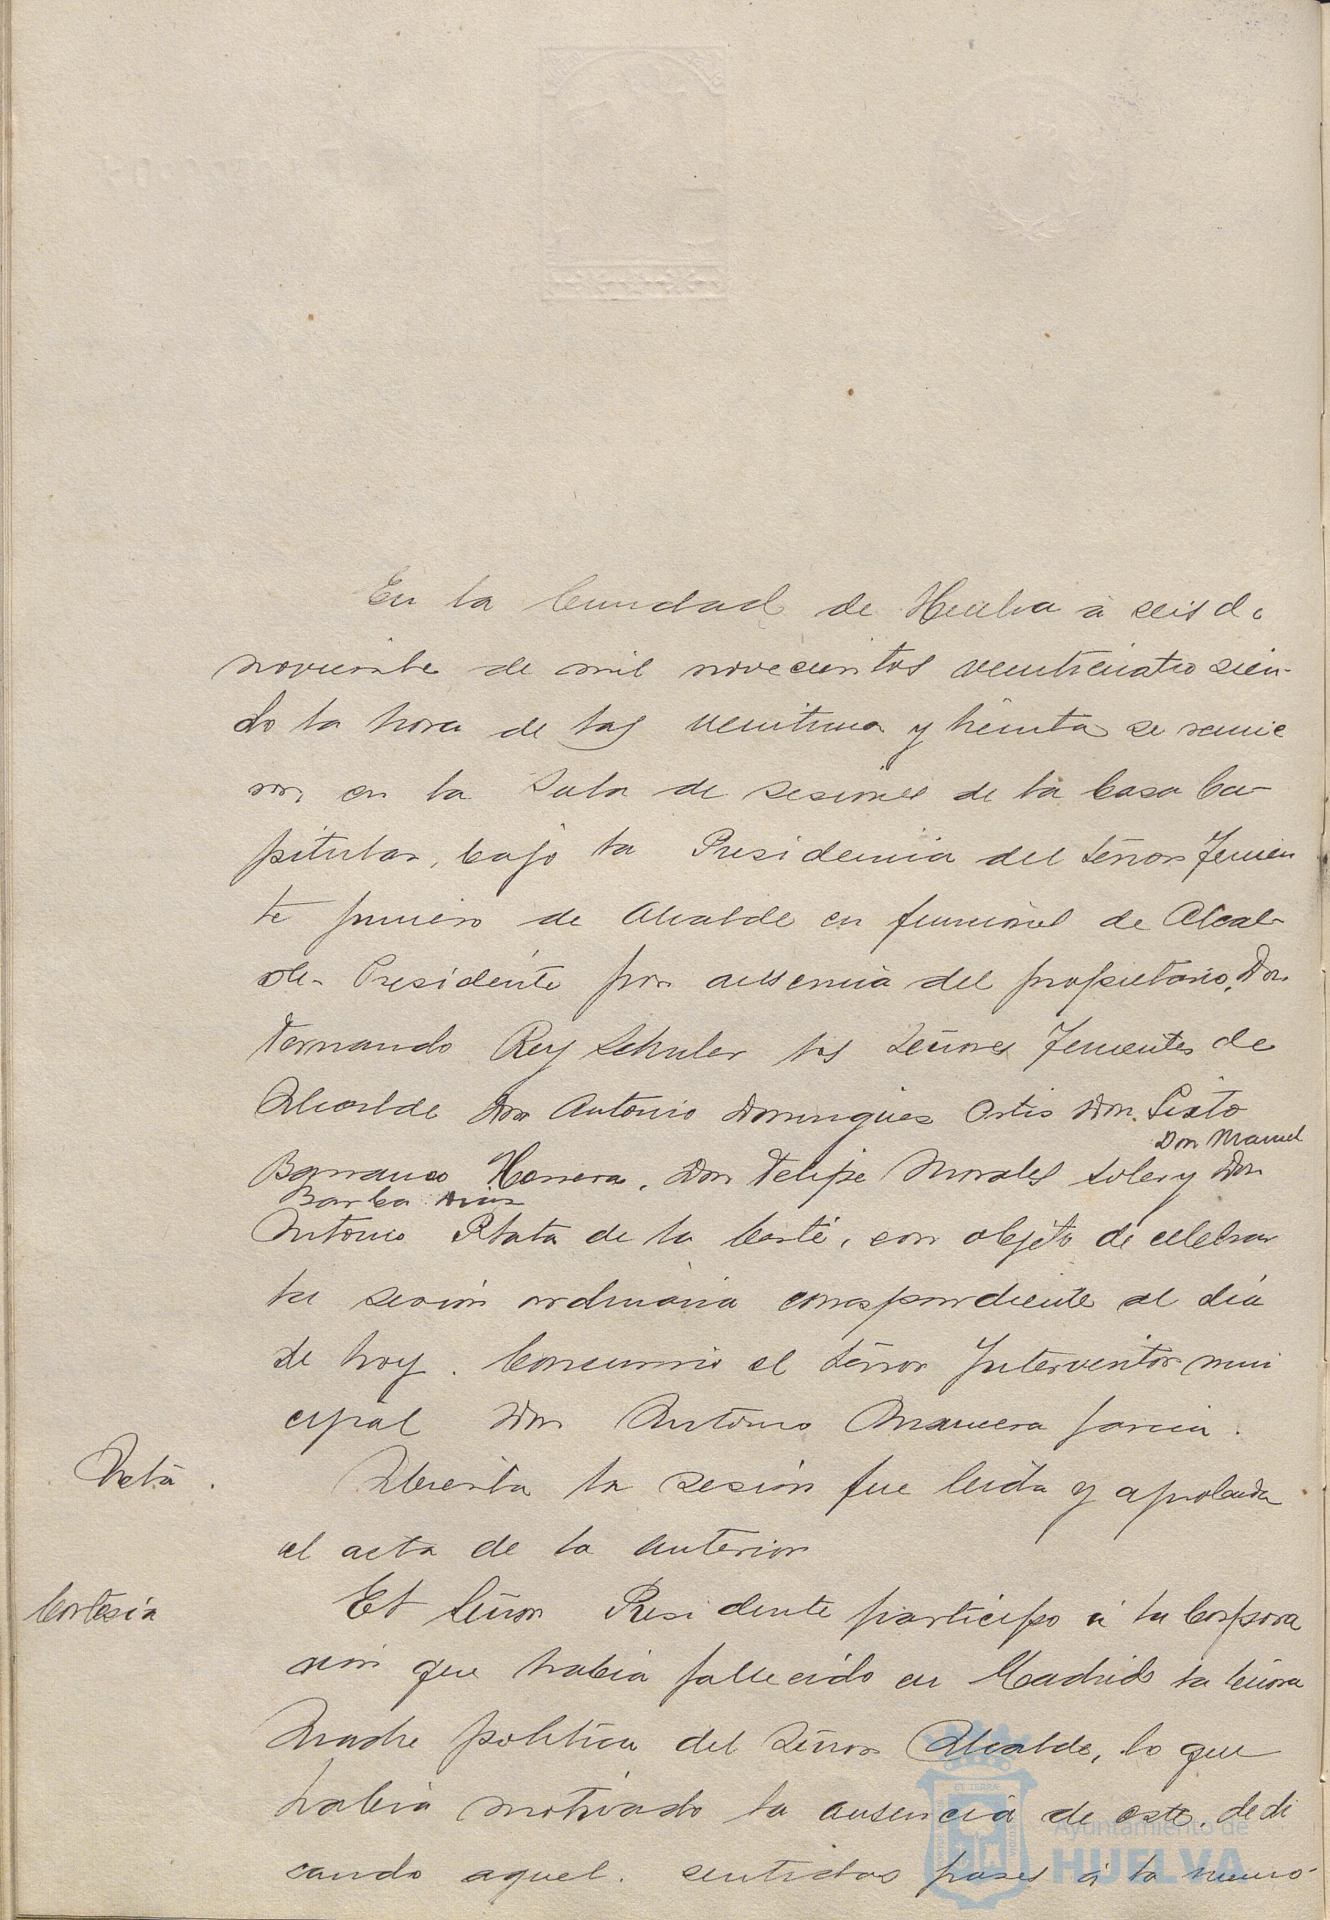 En la Ciudad de Huelva a seis de
noviembre de mil novecientos veinticuatro sien-
do la hora de las veintiuna y treinta se reunie
ron, en la Sala de sesiones de la Casa Ca-
pitular, bajo la Presidencia del Señor Tenien
te primero de Alcalde en funciones de Alcal-
de-Presidente por ausencia del propietario, Don
Fernando Rey Schuler los Señores Tenientes de
Alcalde Don Antonio Domínguez Ortiz Don Sixto
Don Manuel
Barranco Herrera, Don Felipe Morales Soler y Don
Barba
Antonio Plata de la Corte, con objeto de celebrar
la sesión ordinaria correspondiente al día
de hoy. Concurrió el Señor Interventor muni
cipal Don Antonio García.
Acta.
Abierta la sesión fue leída y aprobada
el acta de la anterior
Cortesía
El Señor Presidente participó á la Corpora
ción que había fallecido en Madrid la Señora
Madre política del Señor Alcalde, lo que
había motivado la ausencia de este, dedi
cando aquel. sentidas frases á la memo-
Ayuntamiento de
HUELVA